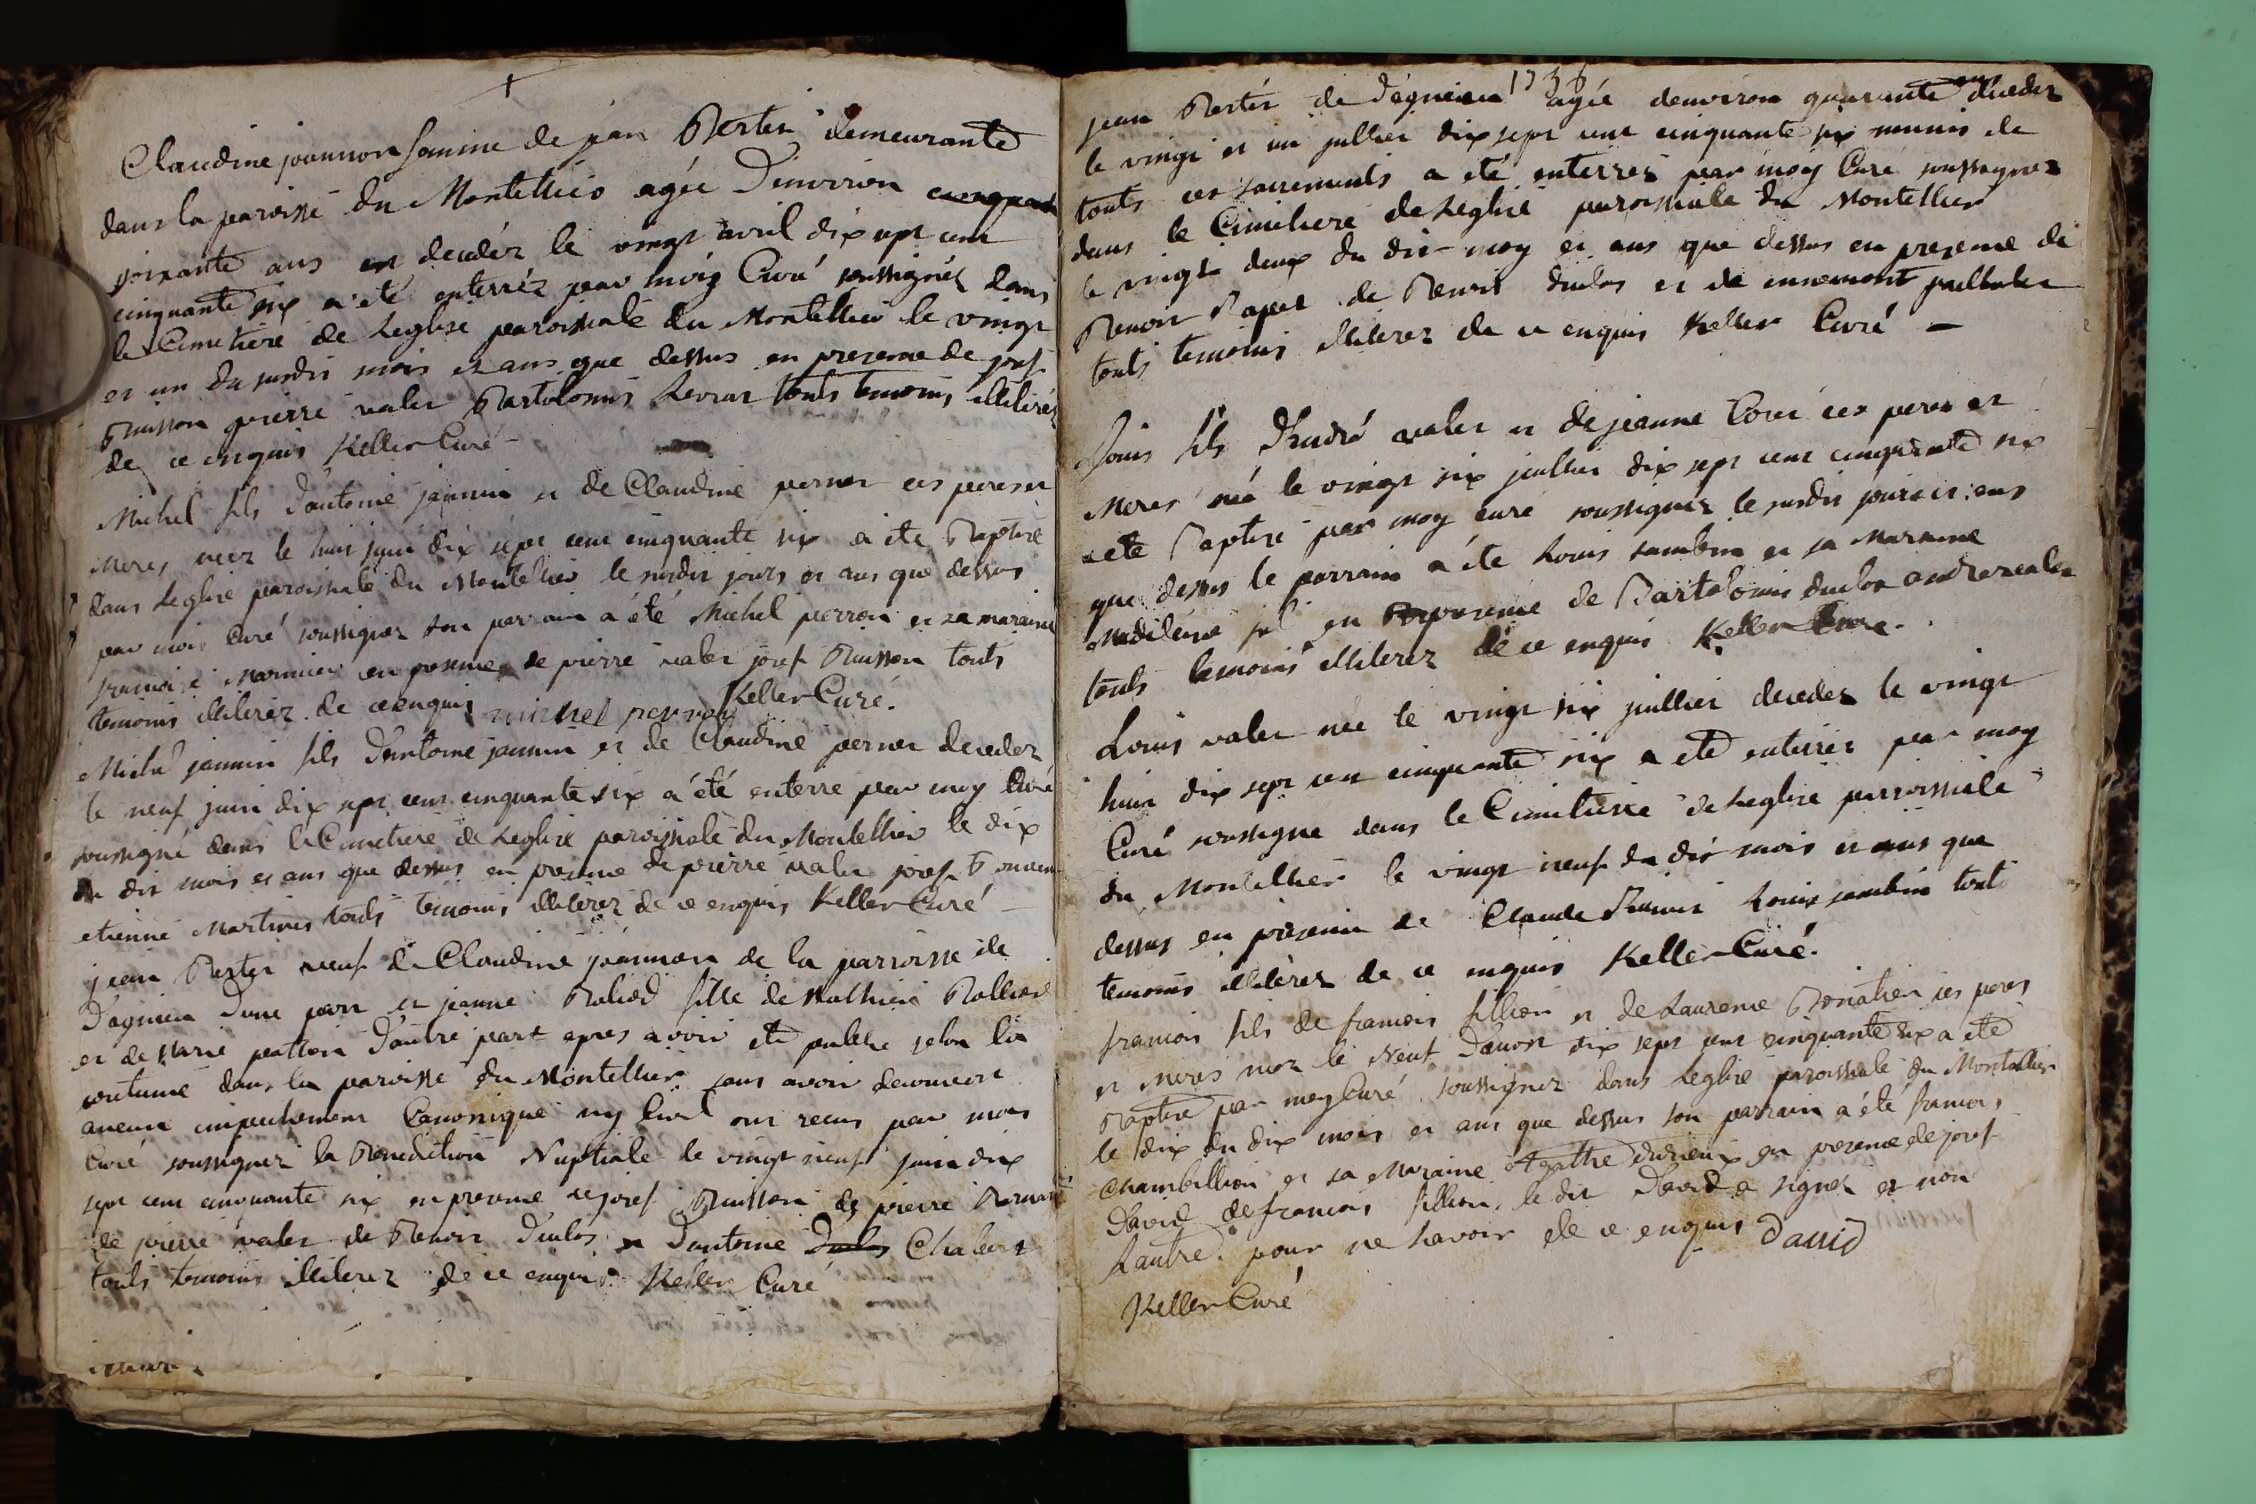 Claudine joannon famme de jean Bertin demeurante
dans la paroisse du Montellier agée Dinviron
soixante ans est decedéz le vingt avril dix sept cent
cinquante six a été enterréz par moiy Curé soussignéz dans
le Cimetiere de Leglise paroissiale du Montellier le vingt
et un du susdit mois et ans que dessus en presence de josef
Buisson pierre valer Bartolomis Levrat touts temoins illiteréz
de ce enquis Keller Curé
Michel fils d'antoine jannin et de Claudine perner ces peres et
Meres neez le huit juin dix sept cent cinquante six a ete Baptisé
dans Leglise paroissiale du Montellier le susdit jours et ans que dessus
par mois Curé soussignez son parrain a été Michel perron et sa maraine
francoise Marmier en presence de pierre valer josef Buisson touts
temoins illiterez de ce enquis michel perron Keller Curé.
Michel jannin fils d'antoine jannin et de Claudine perner decedez
le neuf juin dix sept cent cinquante six a été enterré par moy Curé
soussigné dans le Cimetiere de Leglise paroissiale du Montellier le dix
du dit mois et ans que dessus en presence de pierre valer josef
etienne Martines touts temoins illiterez de ce enquis Keller Curé
jean Bertin veuf de Claudine joannon de la parroisse de
D'agnieu Dune part et jeanne Roliod fille de Mathieu Rolliod
et de Marie patton d'autre part apres avoir ete publie selon la
coutume dans la paroisse du Montellier sans avoir decouvert
aucun empechement Canonique ny Civil ont recus par mois
Curé soussignez la Benediction Nuptiale le vingt neuf juin dix
sept cent cinquante six en presence de josef Buisson de pierre
de pierre valer de Benoit Duclos et d'antoine Duclos Chabert
touts temoins illiterez de ce enquis Keller Curé
1756
jean Bertin de Dagnieu agée denviron quarante ans decedez
le vingt et un juillier dix sept cent cinquante six munis de
touts ces sacrements a été enterréz par moy Curé soussignez
dans le Cimetiere de Leglise paroissiale du Montellier
le vingt deux du dit moy et ans que dessus en presence de
Benoit Papet de Benoit Duclos et de
touts temoins illiterez de ce enquis Keller Curé
Louis fils d'André valer et de jeanne Coret ces peres et
Meres née le vingt six juillier dix sept cent cinquante six
a ete Baptisé par moy curé soussignez le susdit jours et ans
que dessus le parrain a été Louis sambin et sa Maraine
Madileine en presence de Bartolomis duclos andre valer
touts temoins illiterez de ce enquis Keller Curé.
Louis valer née le vingt six juillier decedez le vingt
huit dix sept cent cinquante six a eté enterréz par moy
Curé soussigné dans le Cimetiere de Leglise parroissiale
du Montellier le vingt neuf du dit mois et ans que
dessus en presence de Claude Louis sambin tout
temoins illiterez de ce enquis Keller Curé.
francois fils de francois fillion et de Laurence Bonatier ces peres
et Meres nez le Neuf d'auost dix sept cent cinquante six a ete
Baptisé par moy Curé soussignez dans Leglise paroissiale du Montellier
le dix du dix mois et ans que dessus son parrain a été francois
Chambillion et sa Maraine Agathe durieux en presence de josef
David de francois fillion, le dit David a signez et non
Lautre pour ne savoir de ce enquis David
Keller Curé